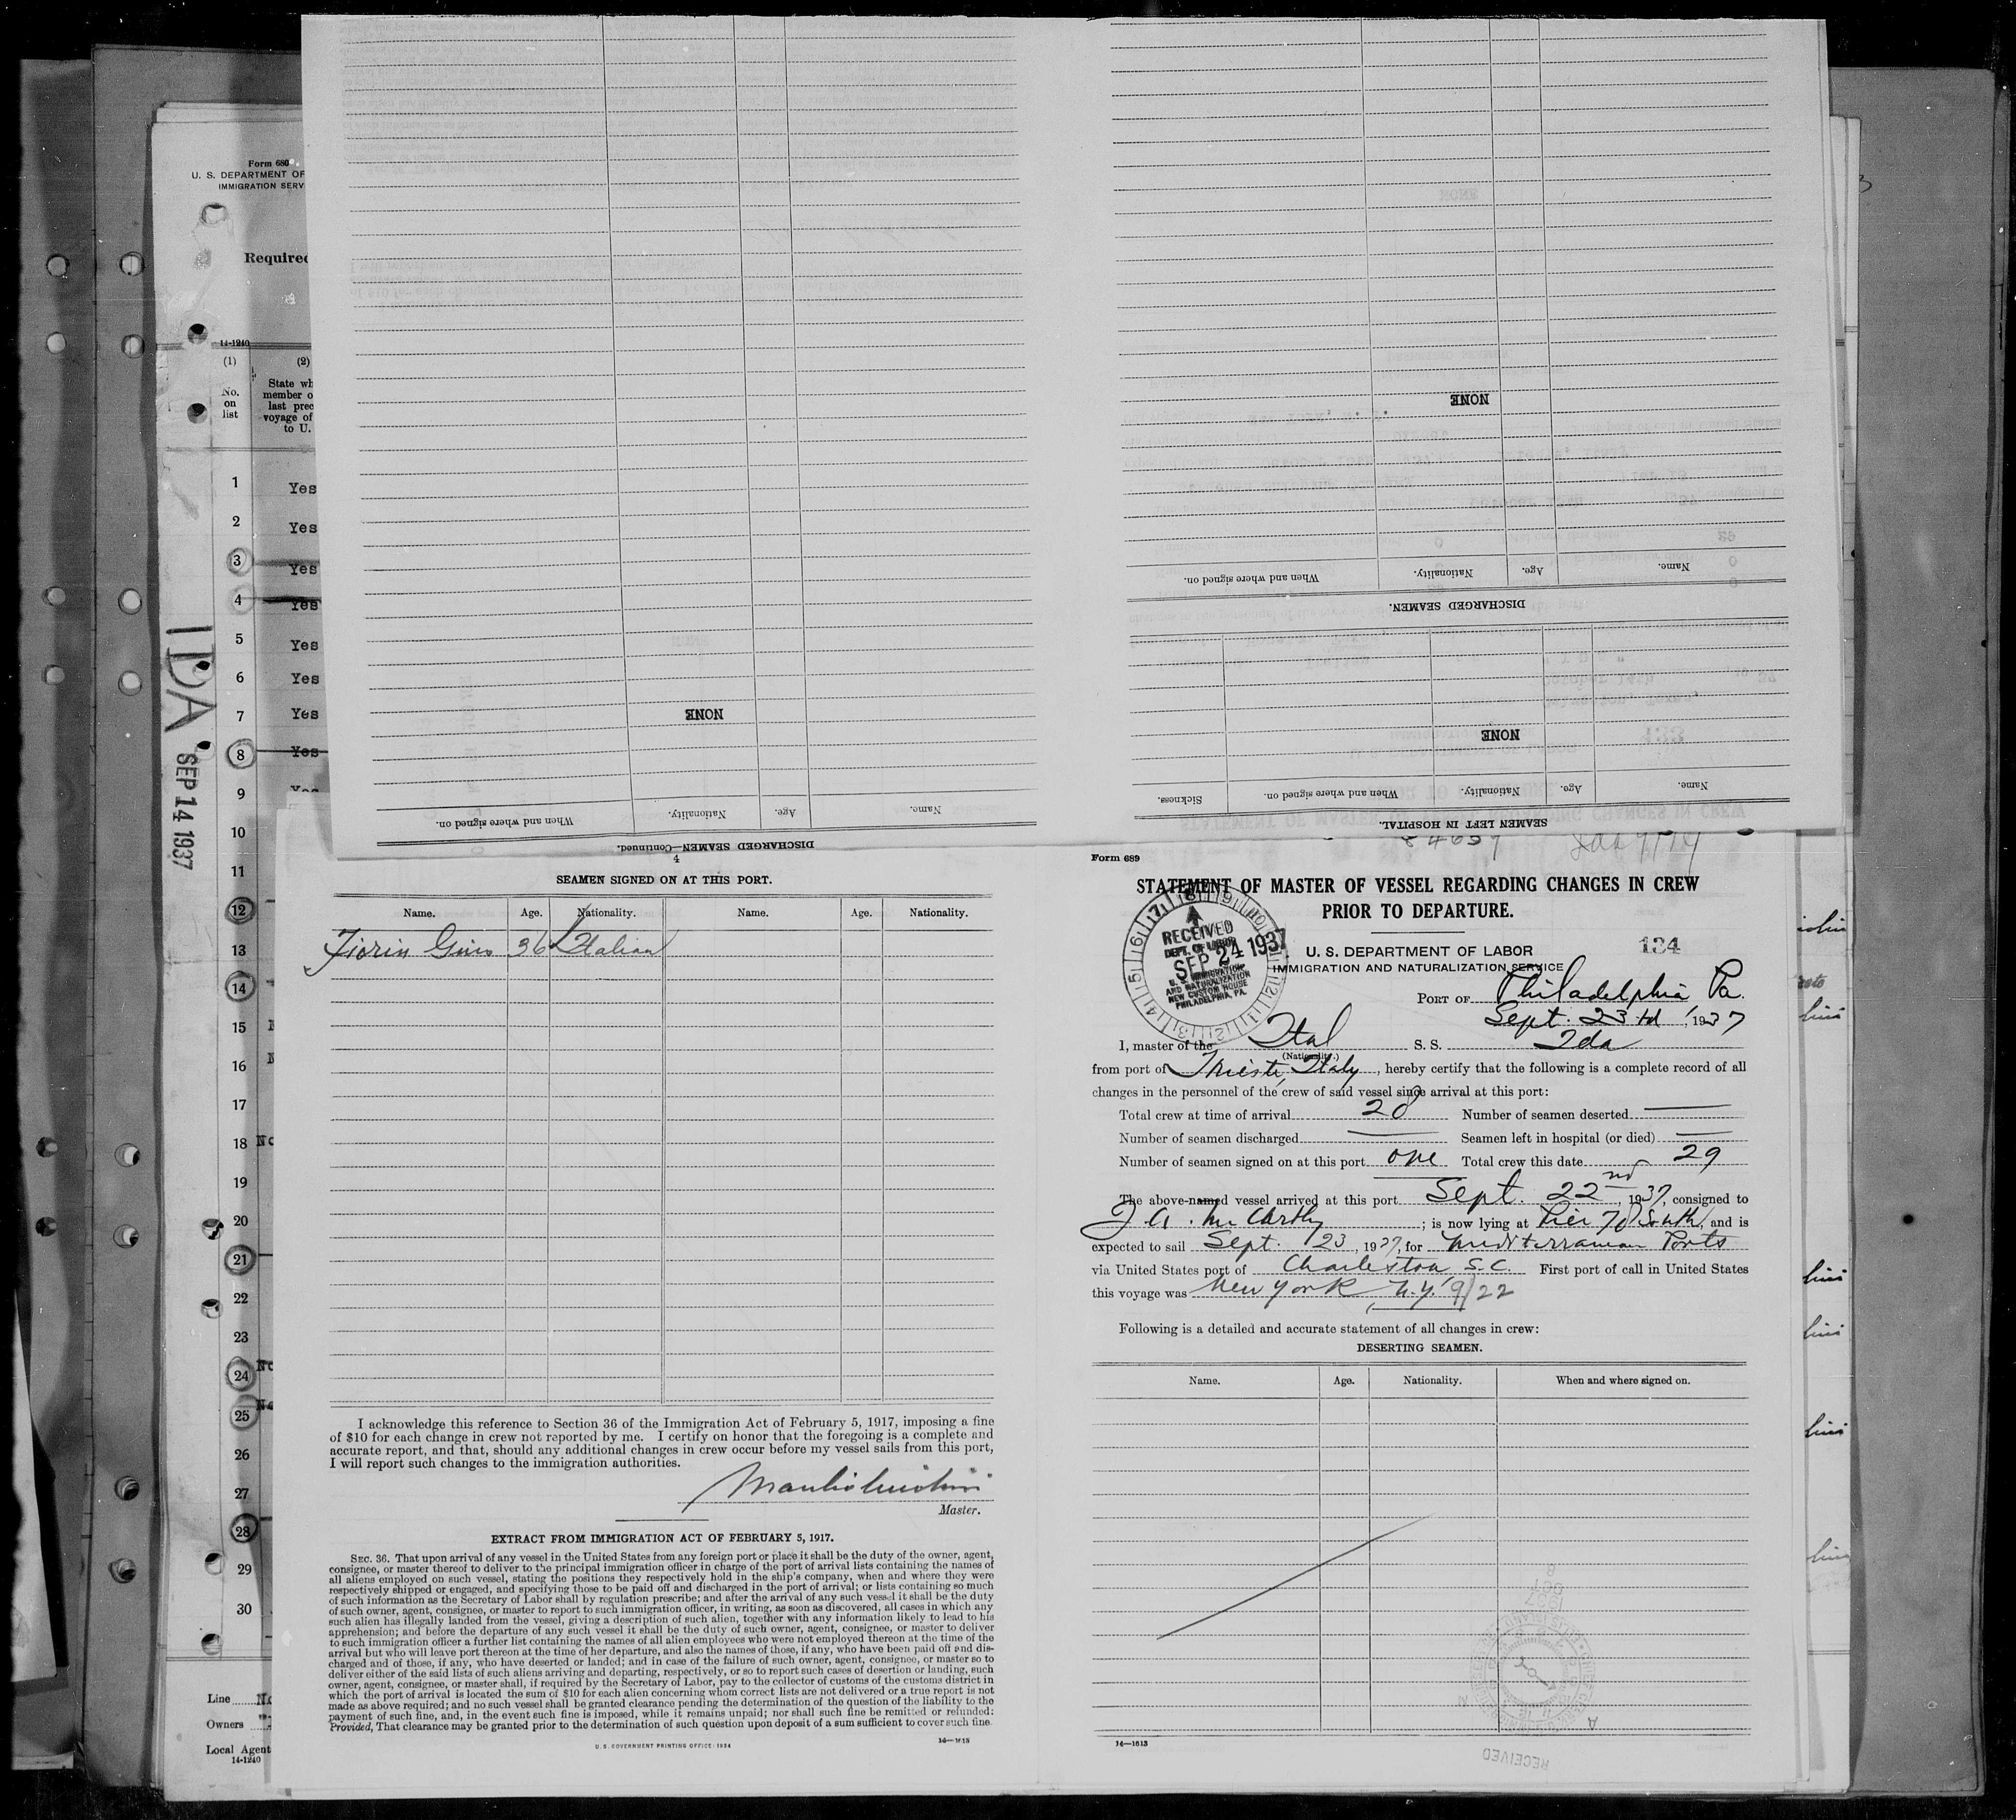 Form 680
U. S. DEPARTMENT OF
IMMIGRATION SERV
Required
14-1240
(1)
(2)
No. on list
State wh
member o
last prec
voyage of
to U.
1 Yes
2 Yes
3 Yes
4 Yes
5 Yes
6 Yes
7 Yes
8 Yes
9
10
11
12
13
14
15
16
17
18 No
19
20
21
22
23
24 No
25 No
26
27
28
29
30
IDA
SEP 14 1937
Line No
Owners
Local Agent
14-1240
NONE
When and where signed on. Nationality. Age. Name.
DISCHARGED SEAMEN.
NONE
Sickness. When and where signed on. Nationality. Age. Name.
SEAMEN LEFT IN HOSPITAL.
NONE
When and where signed on. Nationality. Age. Name.
DISCHARGED SEAMEN—Continued.
4
SEAMEN SIGNED ON AT THIS PORT.
Name. Age. Nationality. Name. Age. Nationality.
Fiorin Gino 36 Italian
I acknowledge this reference to Section 36 of the Immigration Act of February 5, 1917, imposing a fine
of $10 for each change in crew not reported by me. I certify on honor that the foregoing is a complete and
accurate report, and that, should any additional changes in crew occur before my vessel sails from this port,
I will report such changes to the immigration authorities.
Master.
EXTRACT FROM IMMIGRATION ACT OF FEBRUARY 5, 1917.
SEC. 36. That upon arrival of any vessel in the United States from any foreign port or place it shall be the duty of the owner, agent,
consignee, or master thereof to deliver to the principal immigration officer in charge of the port of arrival lists containing the names of
all aliens employed on such vessel, stating the positions they respectively hold in the ship's company, when and where they were
respectively shipped or engaged, and specifying those to be paid off and discharged in the port of arrival; or lists containing so much
of such information as the Secretary of Labor shall by regulation prescribe; and after the arrival of any such vessel it shall be the duty
of such owner, agent, consignee, or master to report to such immigration officer, in writing, as soon as discovered, all cases in which any
such alien has illegally landed from the vessel, giving a description of such alien, together with any information likely to lead to his
apprehension; and before the departure of any such vessel it shall be the duty of such owner, agent, consignee, or master to deliver
to such immigration officer a further list containing the names of all alien employees who were not employed thereon at the time of the
arrival but who will leave port thereon at the time of her departure, and also the names of those, if any, who have been paid off and dis-
charged and of those, if any, who have deserted or landed; and in case of the failure of such owner, agent, consignee, or master so to
deliver either of the said lists of such aliens arriving and departing, respectively, or so to report such cases of desertion or landing, such
owner, agent, consignee, or master shall, if required by the Secretary of Labor, pay to the collector of customs of the customs district in
which the port of arrival is located the sum of $10 for each alien concerning whom correct lists are not delivered or a true report is not
made as above required; and no such vessel shall be granted clearance pending the determination of the question of the liability to the
payment of such fine, and, in the event such fine is imposed, while it remains unpaid; nor shall such fine be remitted or refunded:
Provided, That clearance may be granted prior to the determination of such question upon deposit of a sum sufficient to cover such fine.
U. S. GOVERNMENT PRINTING OFFICE: 1934
14—1613
Form 689
STATEMENT OF MASTER OF VESSEL REGARDING CHANGES IN CREW
PRIOR TO DEPARTURE.
RECEIVED
DEPT. OF LABOR
SEP 24 1937
U. S. IMMIGRATION
AND NATURALIZATION
NEW CUSTOM HOUSE
PHILADELPHIA, PA.
U. S. DEPARTMENT OF LABOR
IMMIGRATION AND NATURALIZATION SERVICE
134
PORT OF Philadelphia Pa.
Sept. 23rd, 1937
I, master of the Ital S. S. Ida
(Nationality.)
from port of Trieste, Italy, hereby certify that the following is a complete record of all
changes in the personnel of the crew of said vessel since arrival at this port:
Total crew at time of arrival 28 Number of seamen deserted —
Number of seamen discharged — Seamen left in hospital (or died) —
Number of seamen signed on at this port one Total crew this date 29
The above-named vessel arrived at this port Sept. 22nd, 1937, consigned to
J A. McCarthy; is now lying at Pier 78 South, and is
expected to sail Sept. 23, 1937, for Mediterranean Ports
via United States port of Charleston, S.C. First port of call in United States
this voyage was New York N.Y. 9/22
Following is a detailed and accurate statement of all changes in crew:
DESERTING SEAMEN.
Name. Age. Nationality. When and where signed on.
14—1613
RECEIVED